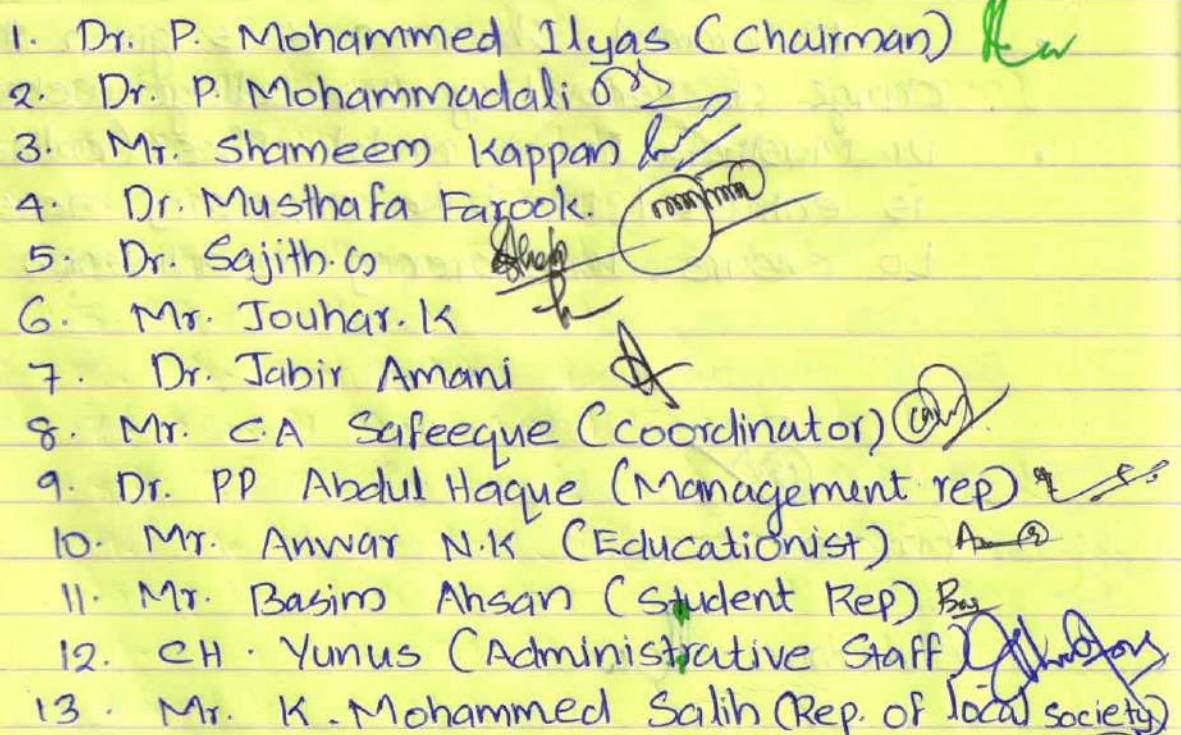 1. Dr. P. Mohammed Ilyas (Chairman)
2. Dr. P. Mohammadali
3. Mr. Shameem Kappan
4. Dr. Musthafa Farook.
5. Dr. Sajith.
6. Mr. Jouhar. K
7. Dr. Jabir Amani
8. Mr. C.A Safeeque (Coordinator)
9. Dr. PP Abdul Haque (Management rep)
10. Mr. Anwar N.K (Educationist)
11. Mr. Basim Ahsan (Student Rep)
12. CH. Yunus (Administrative Staff)
13. Mr. K. Mohammed Salih (Rep. of local society)